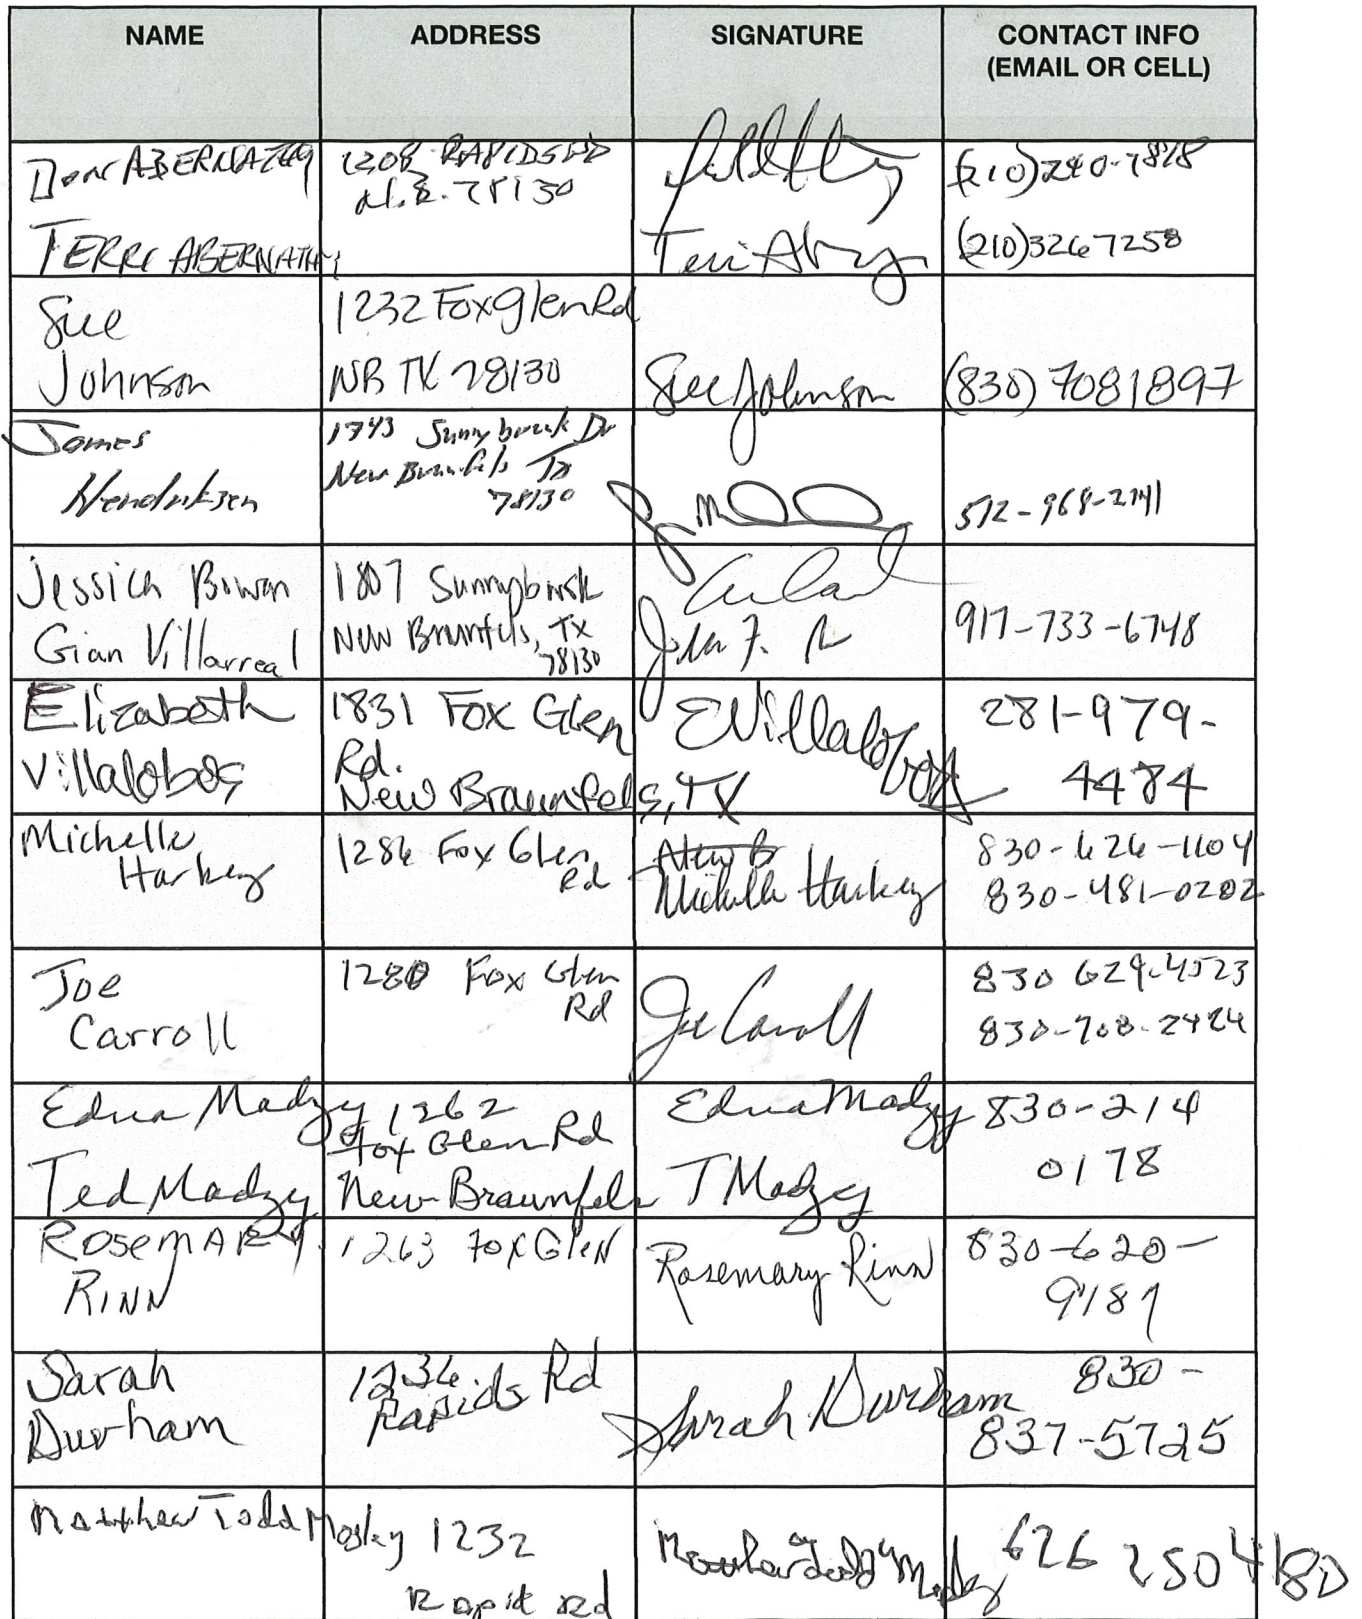 NAME
ADDRESS
SIGNATURE
CONTACT INFO
(EMAIL OR CELL)
Don ABERNATHY
1208 RAPIDS RD
N.B. 78130
(210)240-7878
TERRI ABERNATHY
(210)3267258
Sue
Johnson
1232 Fox Glen Rd
NB TX 78130
Sue Johnson
(830) 7081897
James
Hendriksen
1743 Sunnybrook Dr
New Braunfels Tx
78130
512-968-2141
Jessica Bowan
Gian Villarreal
1807 Sunnybrook
New Braunfels, TX
78130
917-733-6748
Elizabeth
Villalobos
1831 Fox Glen
Rd.
New Braunfels, TX
EVillalobos
281-979-
4484
Michelle
Harkey
1286 Fox Glen
Rd
New B
Michelle Harkey
830-626-1104
830-481-0202
Joe
Carroll
1280 Fox Glen
Rd
Joe Carroll
830 629-4523
830-708-2424
Edna Madzy
Ted Madzy
1262
Fox Glen Rd
New Braunfels
Edna Madzy
T Madzy
830-214
0178
ROSEMARY
RINN
1263 Fox Glen
Rosemary Rinn
830-620-
9187
Sarah
Durham
1236 Rd
Rapids
Sarah Durham
830-
837-5725
Matthew Todd Mosley
1232
Rapid Rd
Matthew Todd Mosley
626 2504180